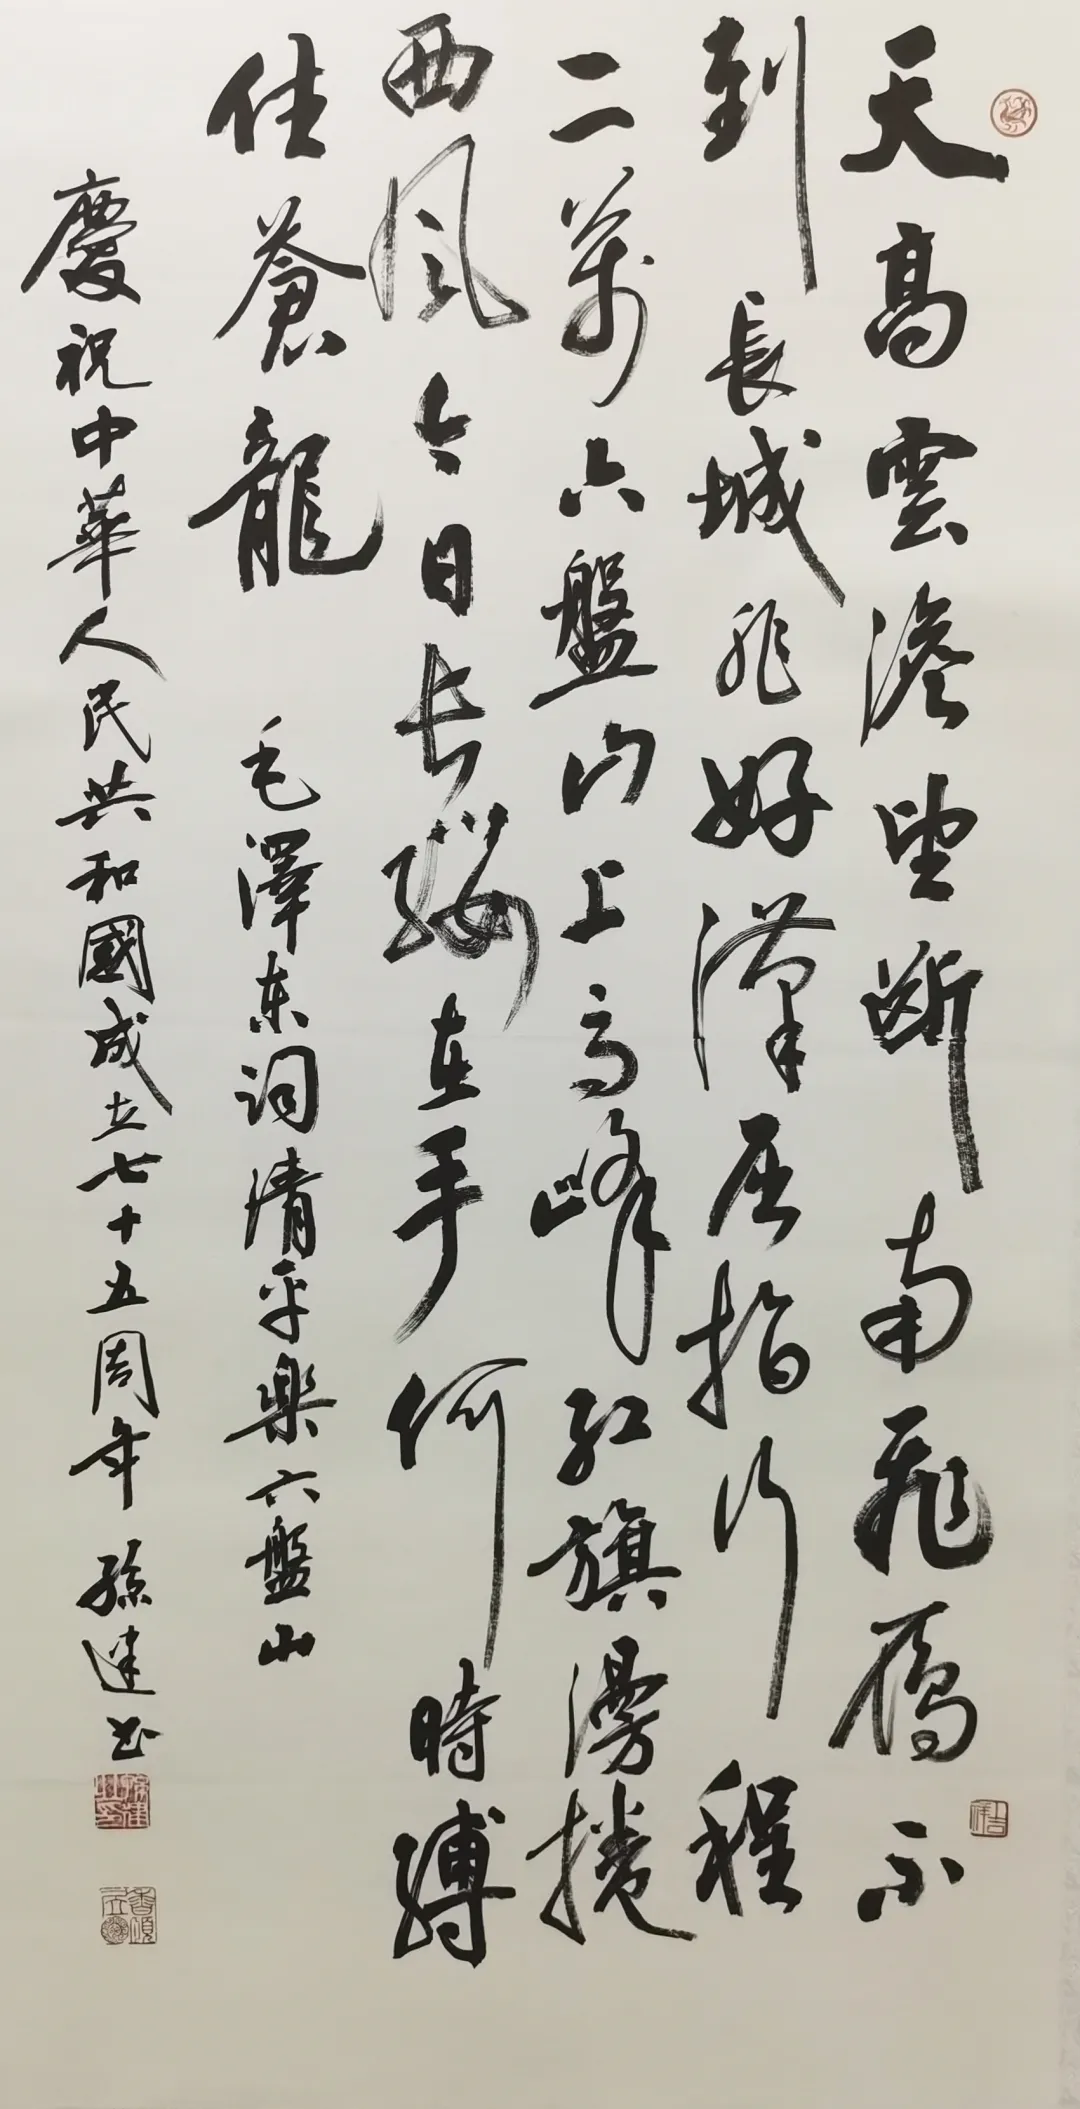 天高雲澹望斷南飛雁不
到長城非好漢屈指行程
二萬六盤山上高峰紅旗漫捲
西風今日長纓在手何時縛
住蒼龍 毛澤东词清平樂六盤山
慶祝中華人民共和國成立七十五周年 孫建书
吉祥